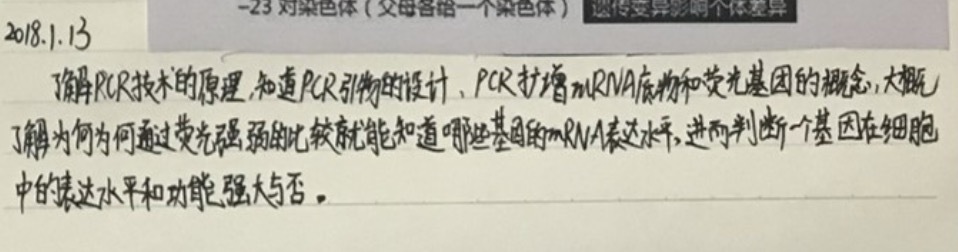 -23 对染色体（父母各给一个染色体） 遗传变异影响个体差异
2018.1.13
了解PCR技术的原理,知道PCR引物的设计、PCR扩增mRNA底物和荧光基因的概念,大概
了解为何为何通过荧光强弱的比较就能知道哪些基因的mRNA表达水平,进而判断一个基因在细胞
中的表达水平和功能强大与否。